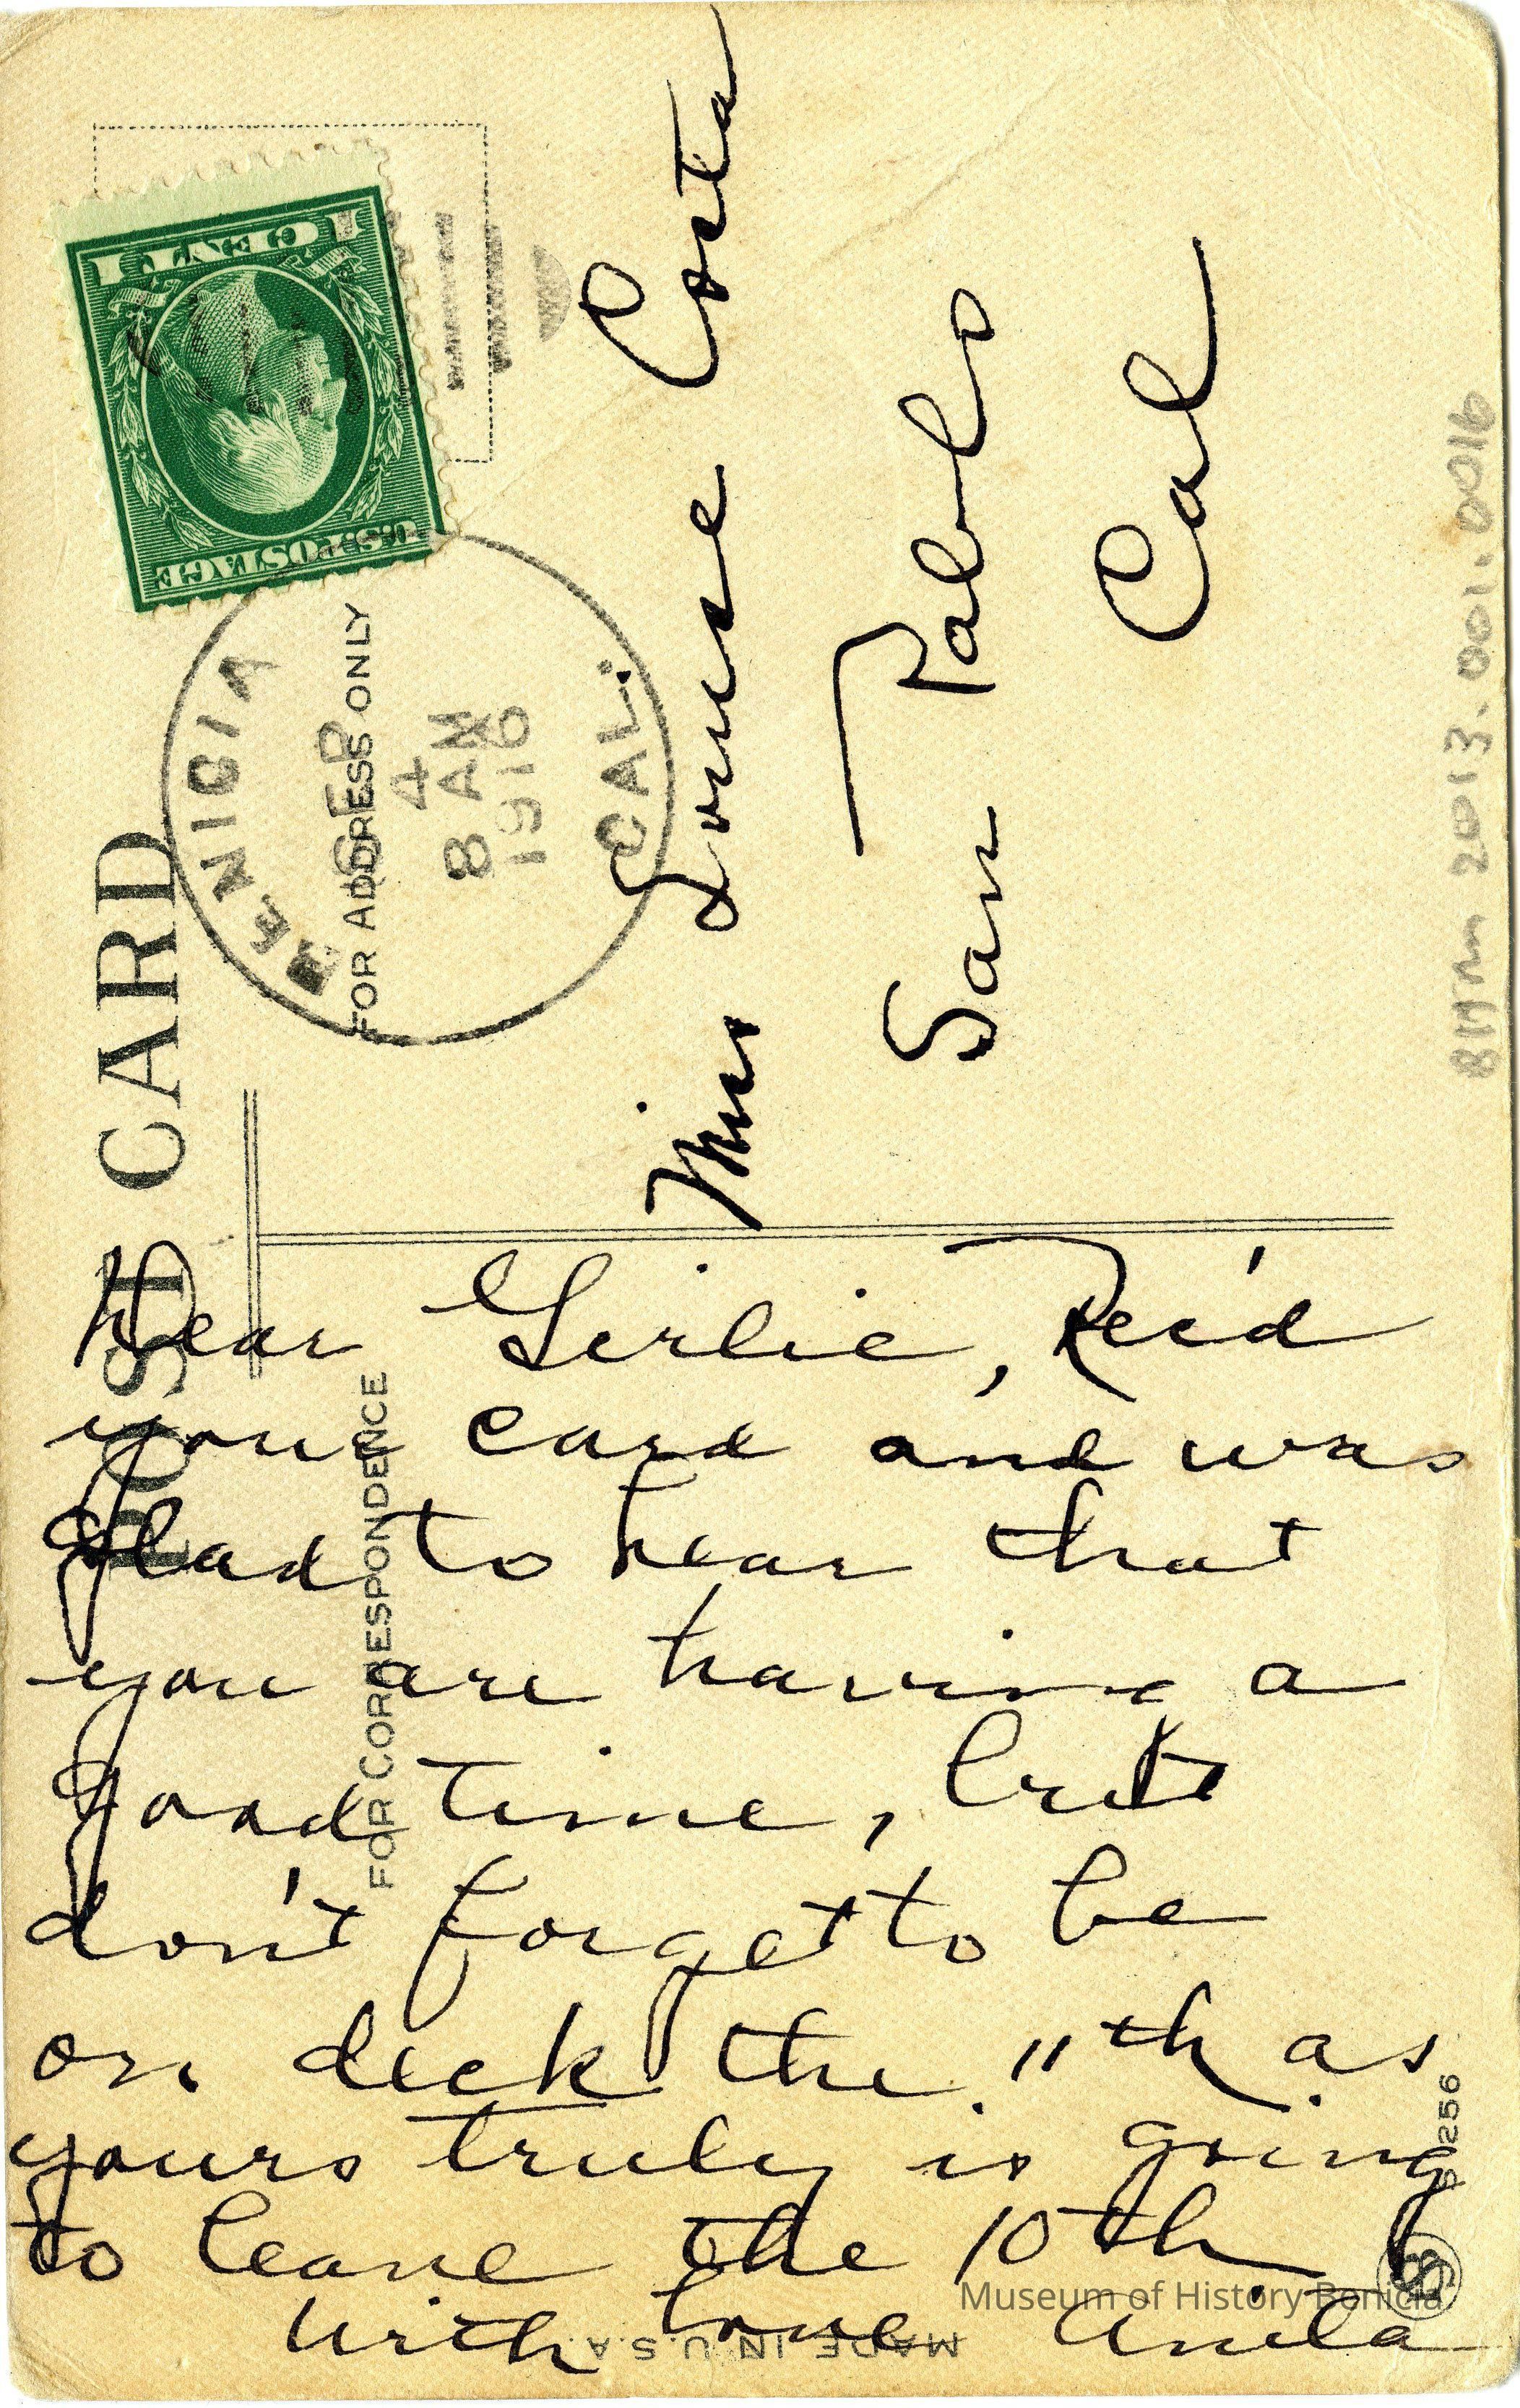 POST CARD
FOR ADDRESS ONLY
FOR CORRESPONDENCE
1 CENT 1
U.S. POSTAGE
BENICIA
SEP
4
8 AM
1916
CAL.
Miss Louise Costa
San Pablo
Cal
Dear Girlie, Rec'd
your card and was
glad to hear that
you are having a
good time, but
don't forget to be
on deck the 11th as
yours truly is going
to leave the 10th.
With love Anita
BHM 2013.001.0016
256
MADE IN U.S.A.
Museum of History Benicia